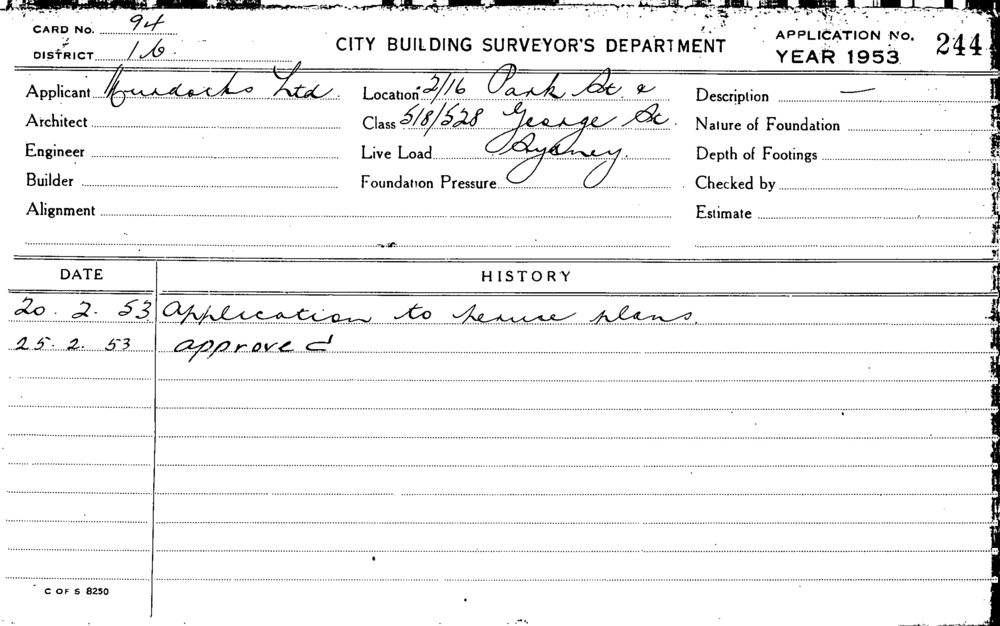 CARD No. 94
DISTRICT 16.
CITY BUILDING SURVEYOR'S DEPARTMENT
APPLICATION No. 244
YEAR 1953
Applicant Murdochs Ltd. Location 2/16 Park St. & Description —
Architect Class 518/528 George St. Nature of Foundation
Engineer Live Load Sydney. Depth of Footings
Builder Foundation Pressure Checked by
Alignment Estimate
DATE HISTORY
20. 2. 53 Application to peruse plans.
25. 2. 53 approved
C OF S 8250